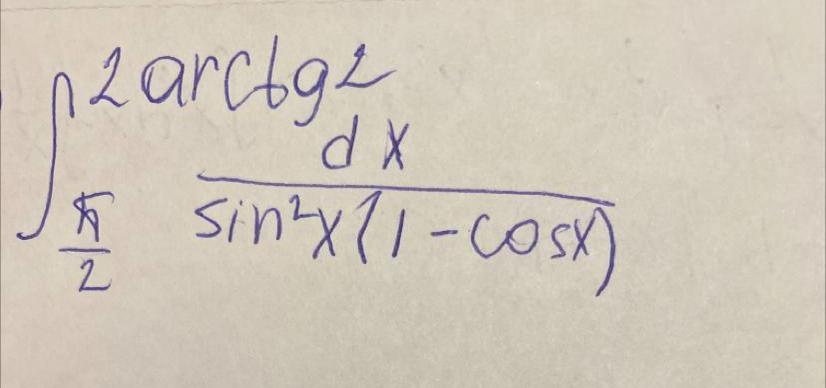 ∫ 2arctg2
dx
π/2 sin²x(1-cosx)